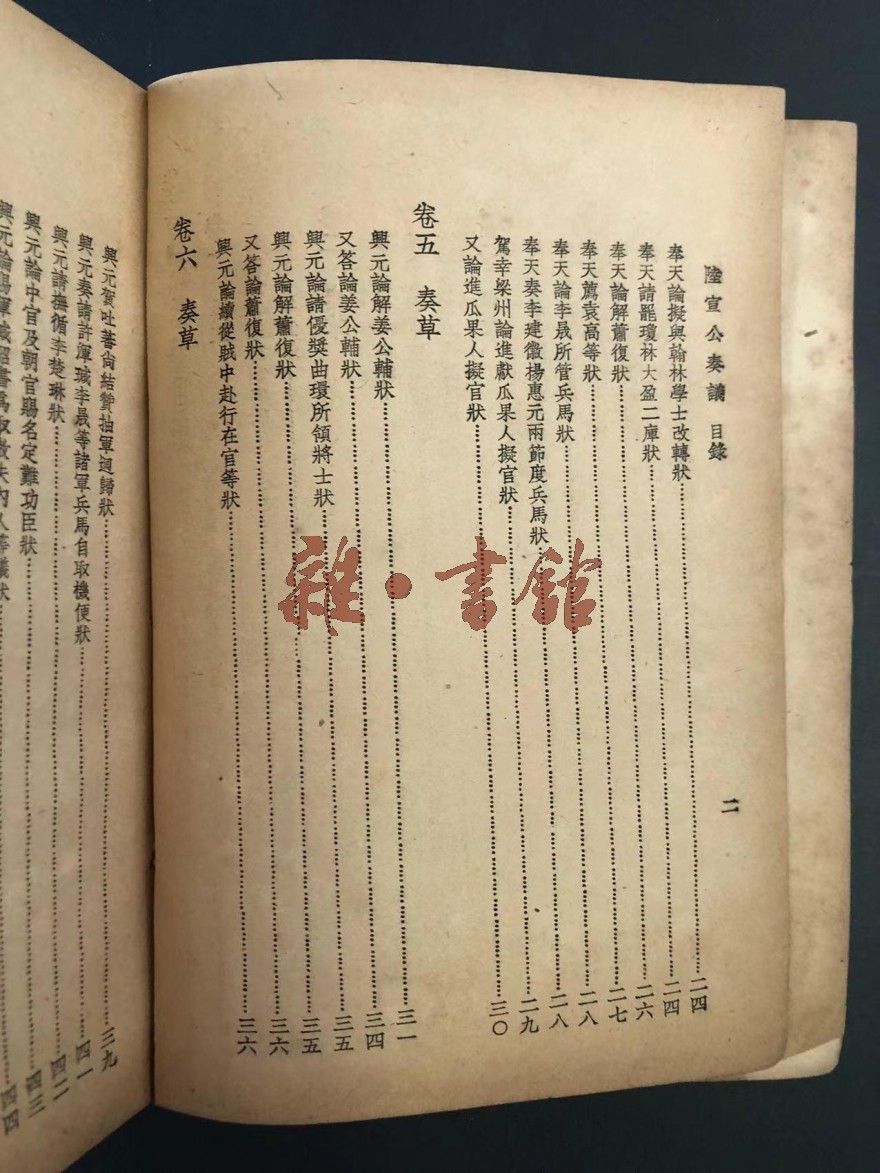 陸宣公奏議 目錄
二
奉天論擬與翰林學士改轉狀……二四
奉天請罷瓊林大盈二庫狀……二四
奉天論解蕭復狀……二六
奉天薦袁高等狀……二七
奉天論李晟所管兵馬狀……二八
奉天奏李建徽楊惠元兩節度兵馬狀……二八
駕幸梁州論進獻瓜果人擬官狀……二九
又論進瓜果人擬官狀……三〇
卷五 奏草
興元論解姜公輔狀……三一
又答論姜公輔狀……三四
興元論請優獎曲環所領將士狀……三五
興元論解蕭復狀……三五
又答論蕭復狀……三六
興元論續從賊中赴行在官等狀……三六
卷六 奏草
興元賀吐蕃尚結贊抽軍迴歸狀……三九
興元奏請許渾瑊李晟等諸軍兵馬自取機便狀……四一
興元請撫循李楚琳狀……四二
興元論中官及朝官賜名定難功臣狀……四三
興元論賜渾瑊詔書為取散失內人等議狀……四四
雜·書館